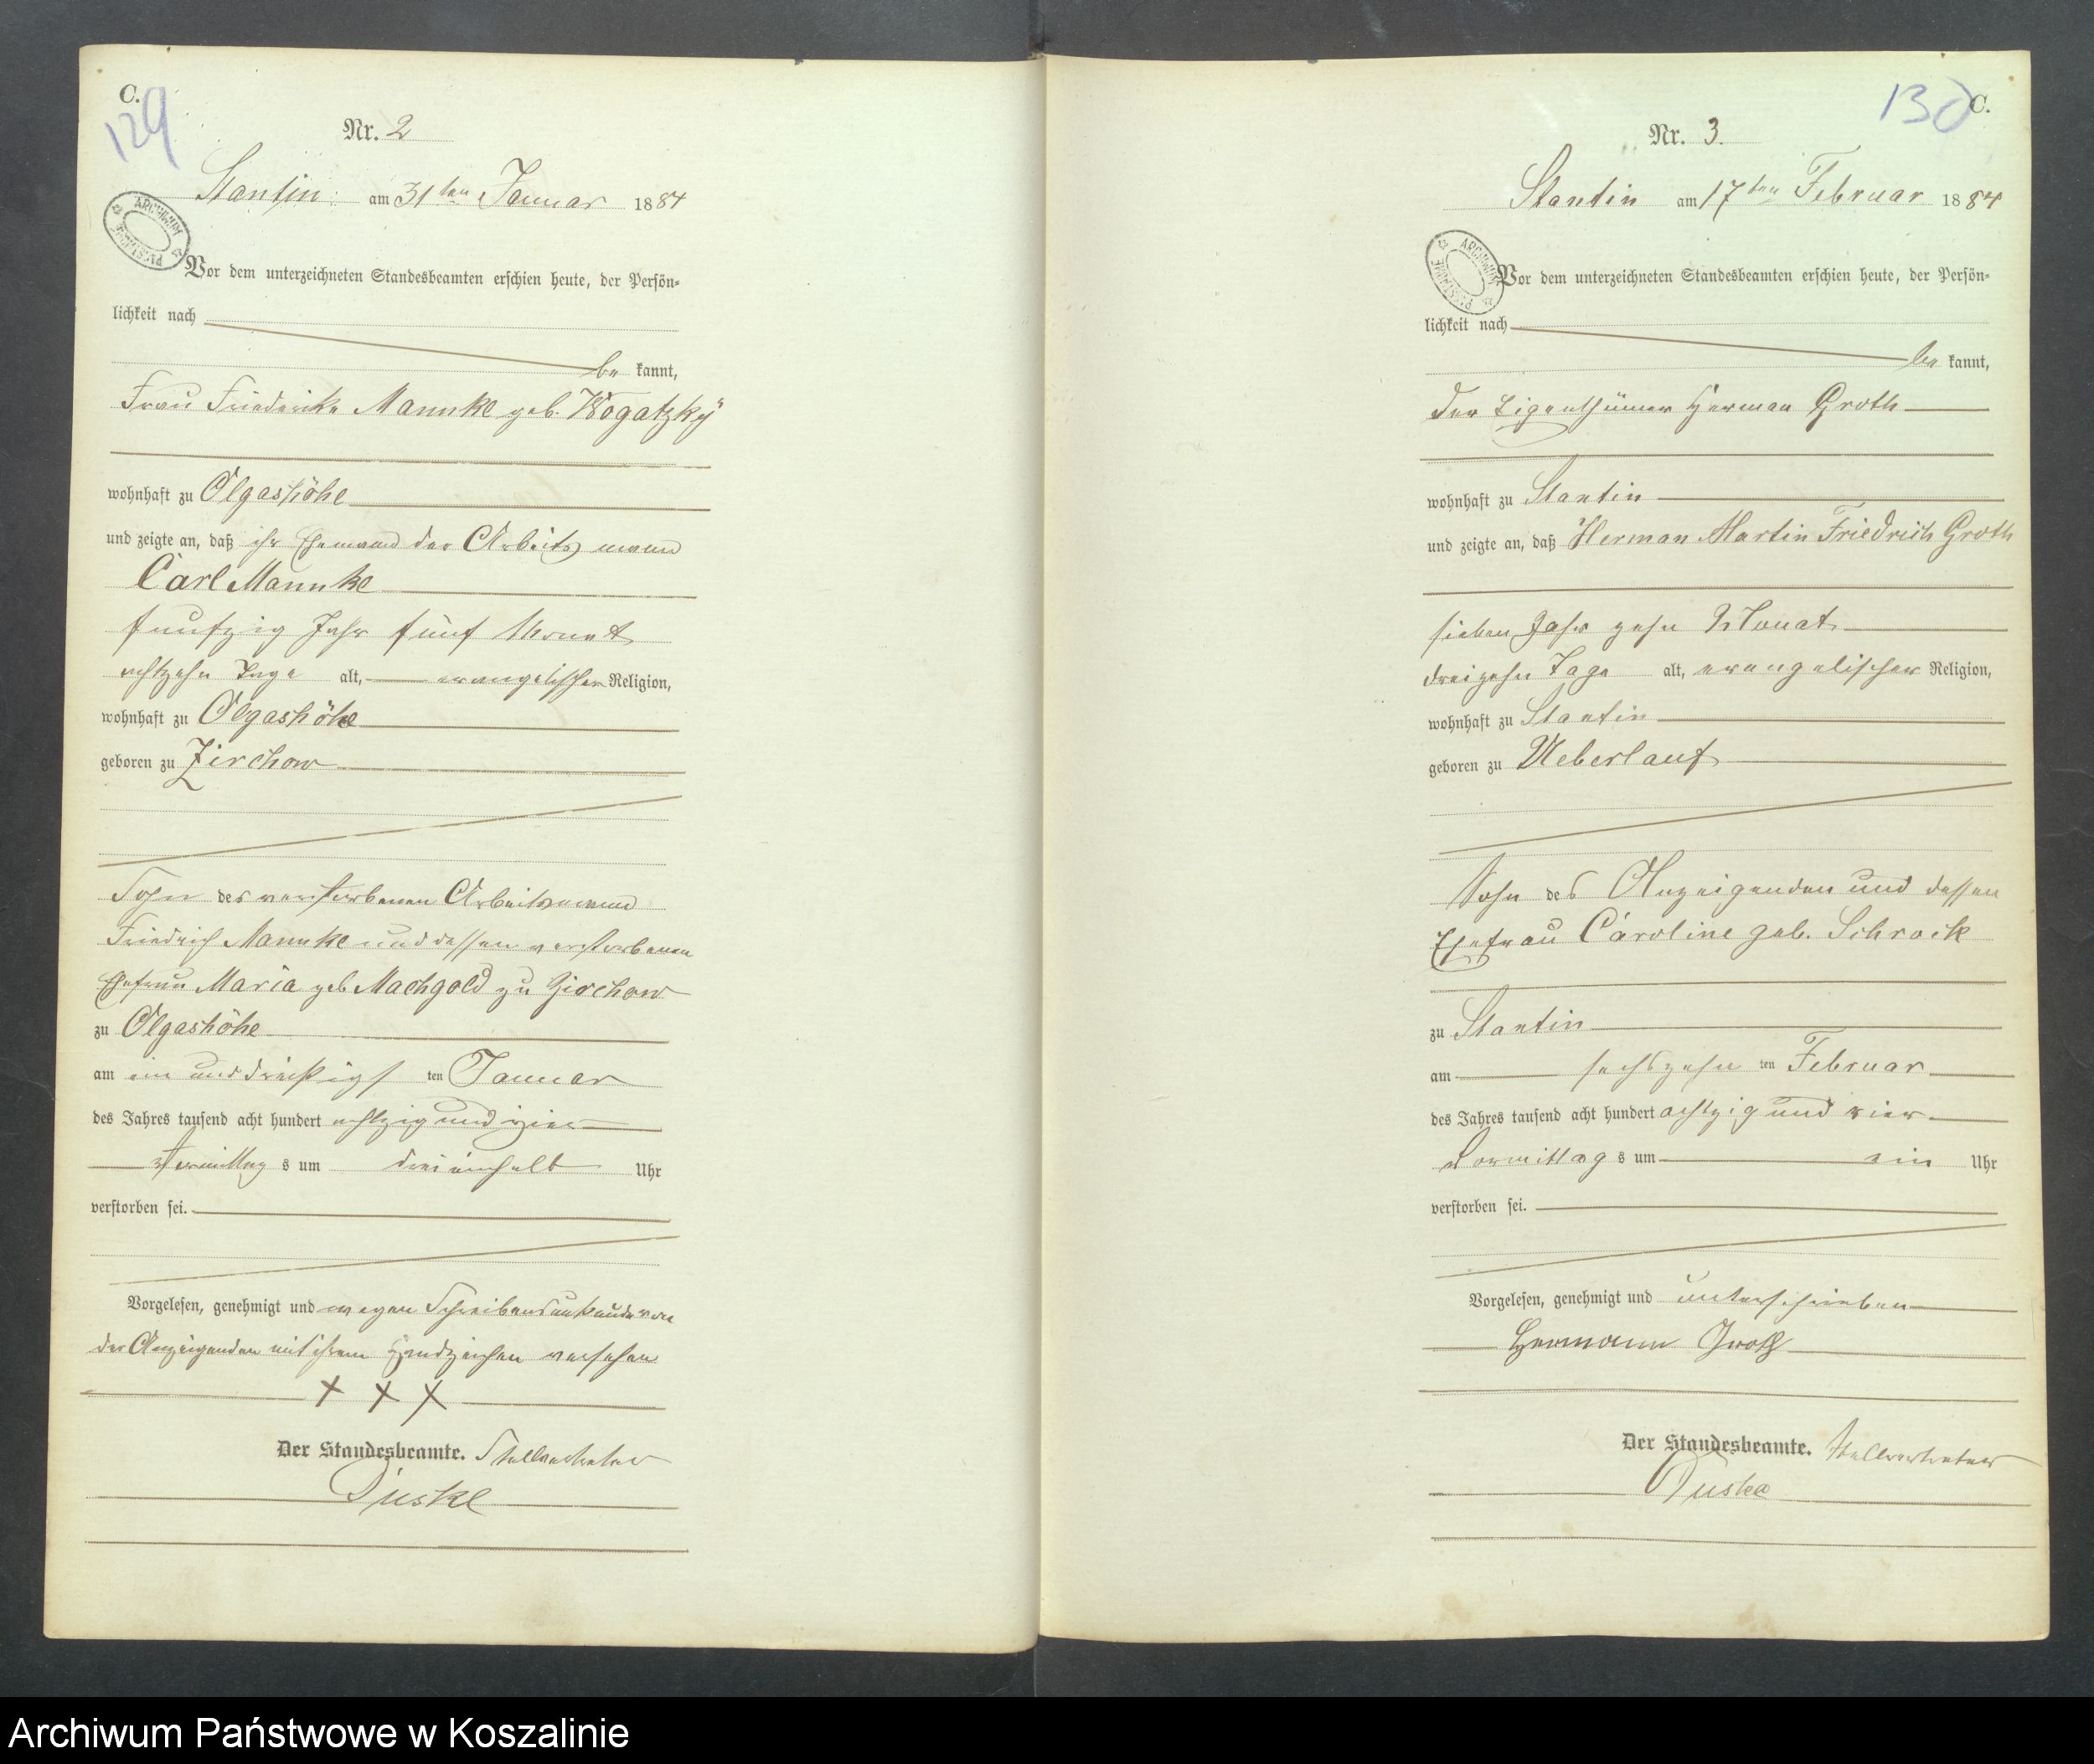 C.
129
Nr. 2
Stantin am 31ten Januar 1884
ARCHIWUM PAŃSTWOWE
Vor dem unterzeichneten Standesbeamten erschien heute, der Persön-
lichkeit nach
be kannt,
Frau Friederike Mannke geb. Wogatzky
wohnhaft zu Olgashöhe
und zeigte an, daß ihr Ehemann der Arbeitsmann
Carl Mannke
funfzig Jahr fünf Monat
achtzehn Tage alt, evangelischer Religion,
wohnhaft zu Olgashöhe
geboren zu Zirchow
Sohn des verstorbenen Arbeitsmann
Friedrich Mannke und dessen verstorbenen
Ehefrau Maria geb Machgold zu Zirchow
zu Olgashöhe
am ein und dreißigs ten Januar
des Jahres tausend acht hundert achtzig und vier
Vormittag s um Uhr
verstorben sei.
Vorgelesen, genehmigt und wegen Schreibensunkunde von
der Anzeigenden mit ihrem Handzeichen versehen
+ + +
Der Standesbeamte. Stellvertreter
Puske
130
C.
Nr. 3.
Stantin am 17ten Februar 1884
ARCHIWUM PAŃSTWOWE
Vor dem unterzeichneten Standesbeamten erschien heute, der Persön-
lichkeit nach
be kannt,
der Eigenthümer Herman Groth
wohnhaft zu Stantin
und zeigte an, daß Herman Martin Friedrich Groth
sieben Jahr zehn Monat
dreizehn Tage alt, evangelischer Religion,
wohnhaft zu Stantin
geboren zu Ueberlauf
Sohn des Anzeigenden und dessen
Ehefrau Caroline geb. Schrock
zu Stantin
am sechszehn ten Februar
des Jahres tausend acht hundert achtzig und vier
Vormittag s um ein Uhr
verstorben sei.
Vorgelesen, genehmigt und unterschrieben
Hermann Groth
Der Standesbeamte. Stellvertreter
Puske
Archiwum Państwowe w Koszalinie